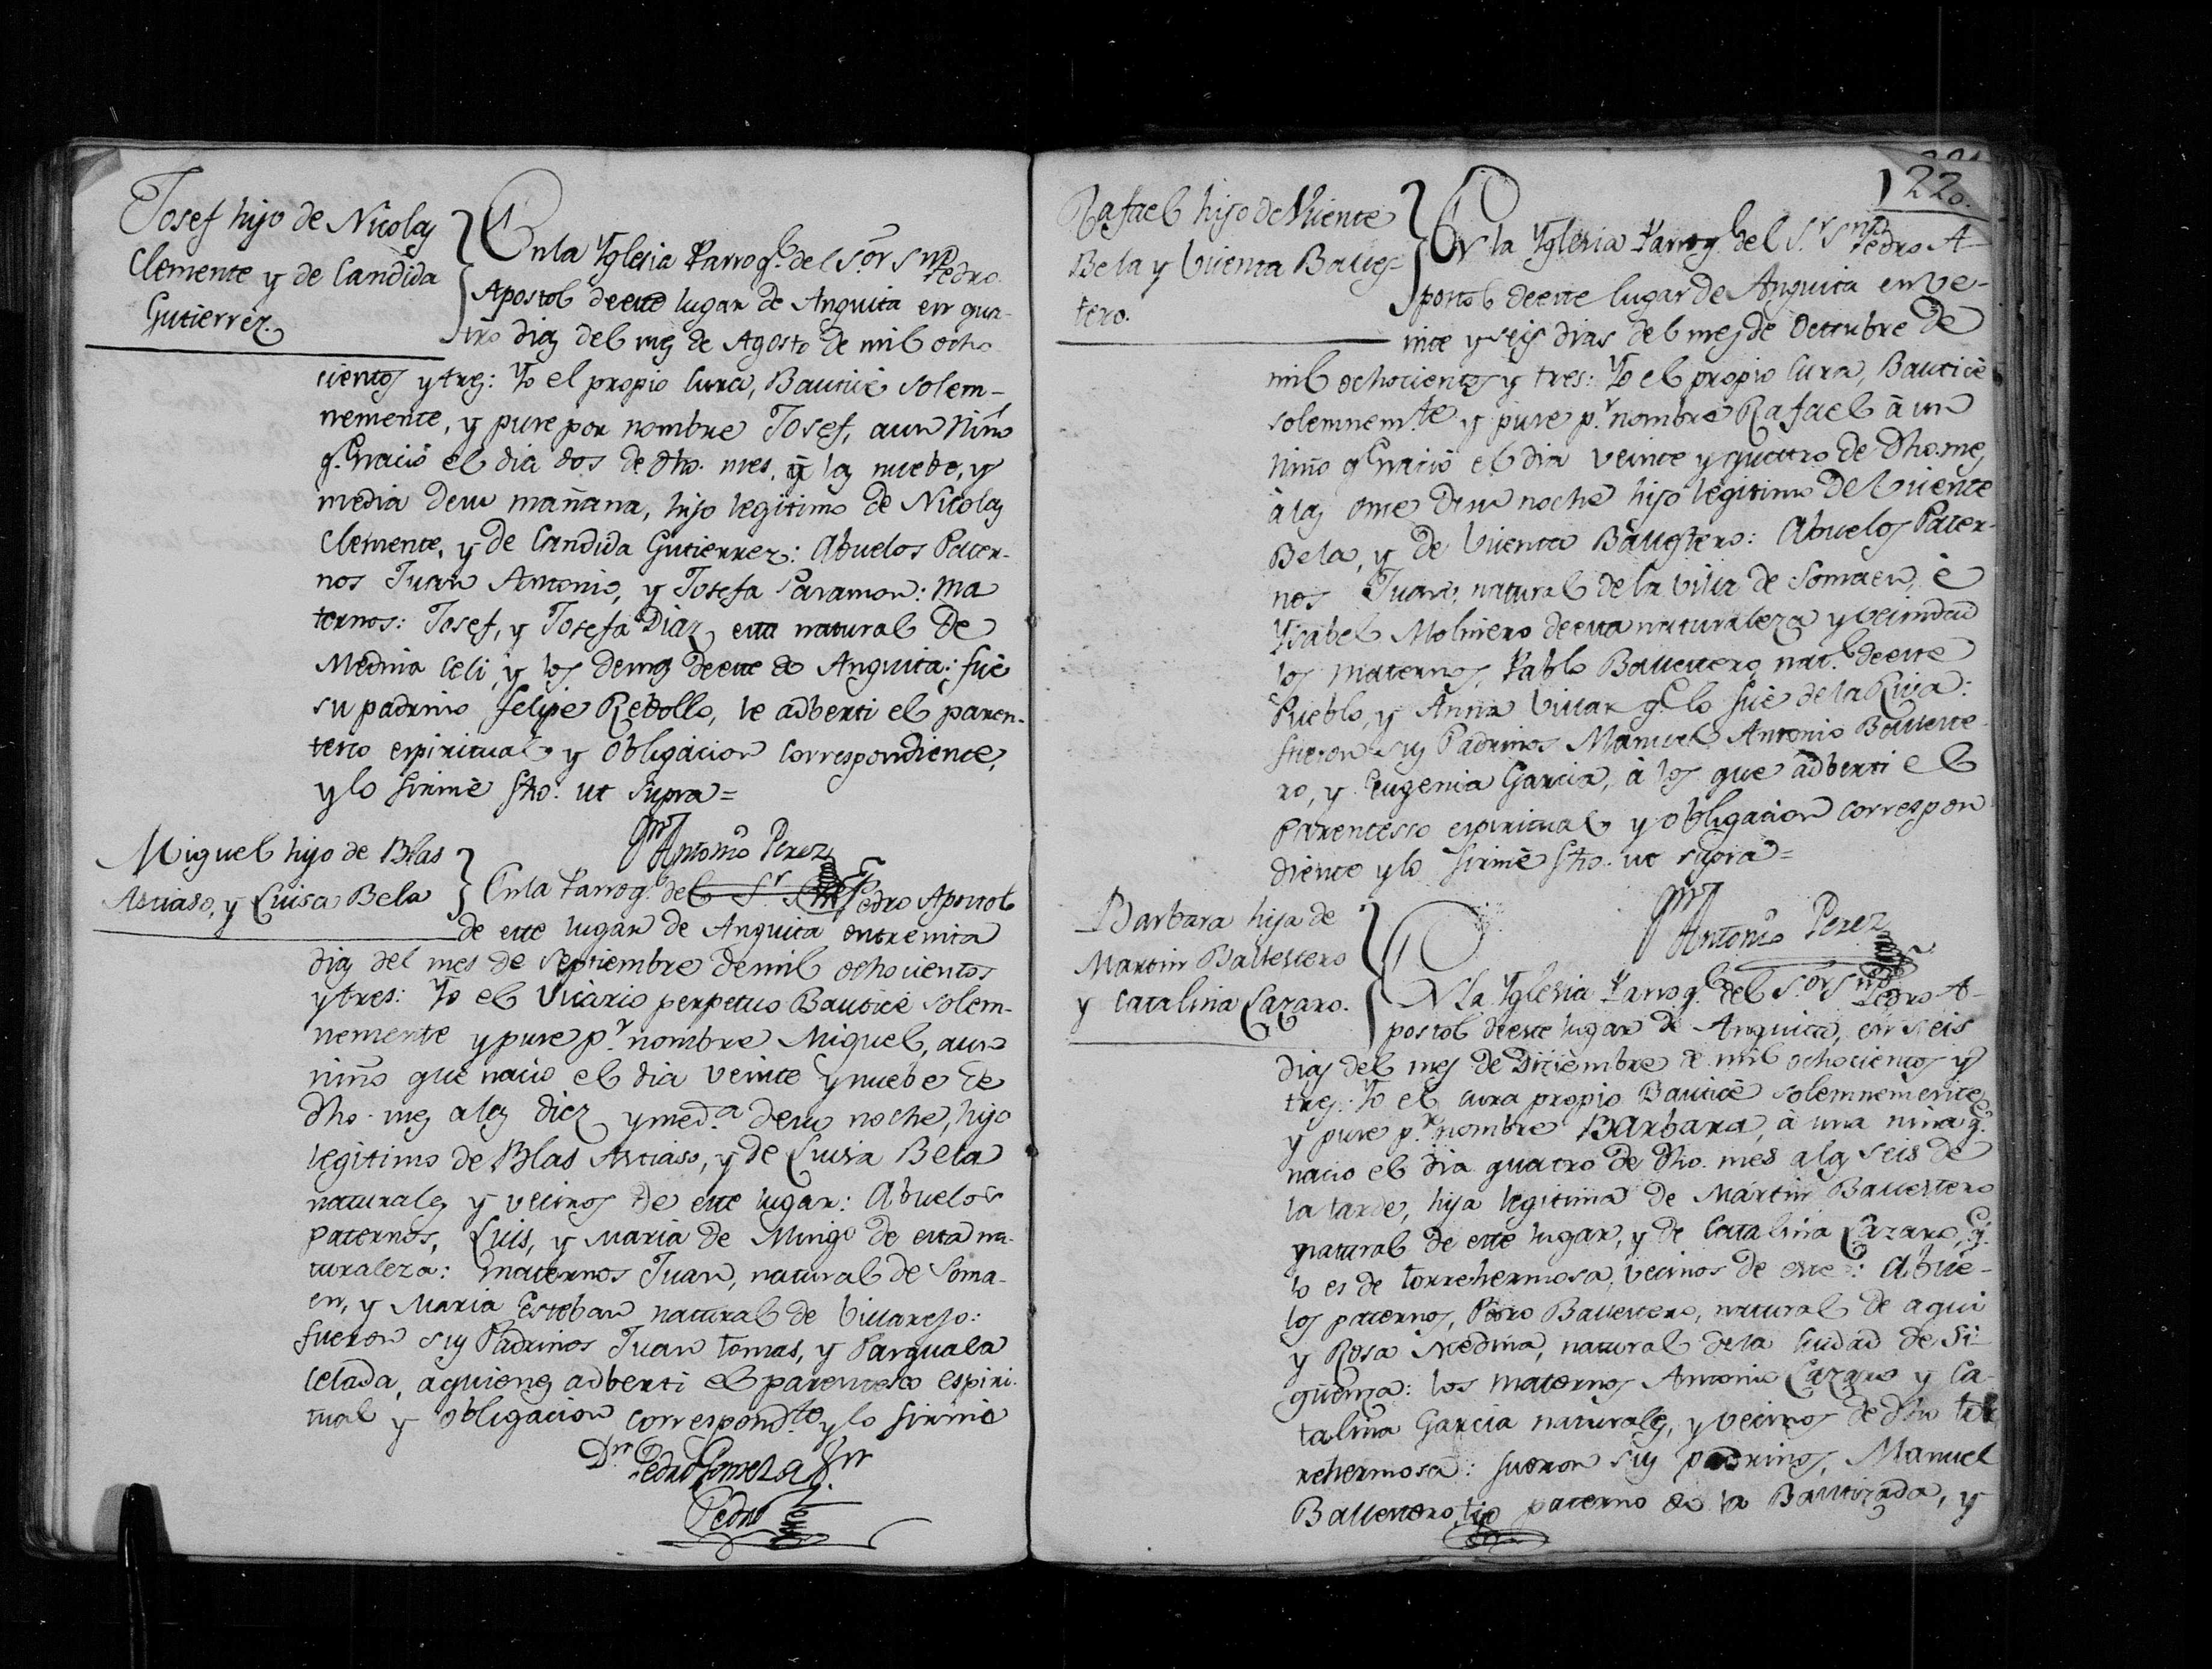 Josef hijo de Nicolas
Clemente y de Candida
Gutierrez.
En la Yglesia Parroql. del Sor Sn Pedro
Apostol de este lugar de Anguita en qua-
tro dias del mes de Agosto de mil ocho
cientos y tres: Yo el propio Cura, Bauticé solem-
nemente, y puse por nombre Josef, a un Niño
qe. nació el dia dos de dho. mes, à las nuebe, y
media de su mañana, hijo legitimo de Nicolas
Clemente, y de Candida Gutierrez: Abuelos Pater-
nos Juan Antonio, y Josefa Paramon: Ma
ternos: Josef, y Josefa Diaz, esta natural de
Medina Celi, y los demas de este de Anguita: fué
su padrino Felipe Rebollo, le adberti el paren-
tesco espiritual y obligacion correspondiente,
y lo firmé fho. ut supra=
Antonio Perez
Miguel hijo de Blas
Asciaso, y Luisa Bela
En la Parroql. del Sr. Sn Pedro Apostol
de este lugar de Anguita en treinta
dias del mes de Septiembre de mil ochocientos
y tres: Yo el Vicario perpetuo Bauticé solem-
nemente y puse pr. nombre Miguel, a un
niño que nacio el dia veinte y nuebe de
dho. mes a las diez y meda. de su noche, hijo
legitimo de Blas Asciaso, y de Luisa Bela
naturales y vecinos de este lugar: Abuelos
paternos, Luis, y Maria de Mingo de esta na-
turaleza: maternos Juan, natural de Soma-
en, y Maria Esteban natural de Villarejo:
fueron sus Padrinos Juan tomas, y Pasquala
Celada, a quienes adberti el parentesco espiri-
tual y obligacion correspondte. y lo firmé
Dn Pedro
Pedro
220.
Rafael hijo de Vicente
Bela y Vicenta Balles-
tero.
En la Yglesia Parroql. del Sr. Sn Pedro A-
postol de este lugar de Anguita en ve-
inte y seis dias del mes de Octubre de
mil ochocientos y tres: Yo el propio Cura, Bauticé
solemnemte. y puse pr. nombre Rafael à un
niño qe nació el dia veinte y quatro de dho. mes,
à las once de su noche hijo legitimo de Vicente
Bela, y de Vicenta Ballestero: Abuelos Pater-
nos Juan, natural de la Villa de Somaen, è
Ysabel Molinero de esta naturaleza y vecindad
los maternos, Pablo Ballestero, natl. de este
Pueblo, y Anna Vilar qe. lo fué de la Riva:
fueron sus Padrinos Manuel Antonio Balleste-
ro, y Eugenia Garcia, à los que adberti el
Parentesco espiritual y obligacion correspon
diente y lo firmé fho. ut supra=
Antonio Perez
Barbara hija de
Martin Ballestero
y Catalina Lazaro.
En la Yglesia Parroql. del Sor Sn Pedro A-
postol de este lugar de Anguita, en seis
dias del mes de Diciembre de mil ochocientos y
tres: Yo el cura propio Bauticé solemnemente
y puse pr. nombre Barbara, à una niña qe.
nacio el dia quatro de dho. mes a las seis de
la tarde, hija legitima de Martin Ballestero
natural de este lugar, y de Catalina Lazaro, qe.
lo es de torrehermosa, vecinos de este: Abue-
los paternos, Pedro Ballestero, natural de aqui
y Rosa Medina, natural de la Ciudad de Si-
güenza: los maternos Antonio Lazaro y Ca-
talina Garcia naturales, y vecinos de dho tor
rehermosa: fueron sus padrinos, Manuel
Ballestero, tio paterno de la Bautizada, y